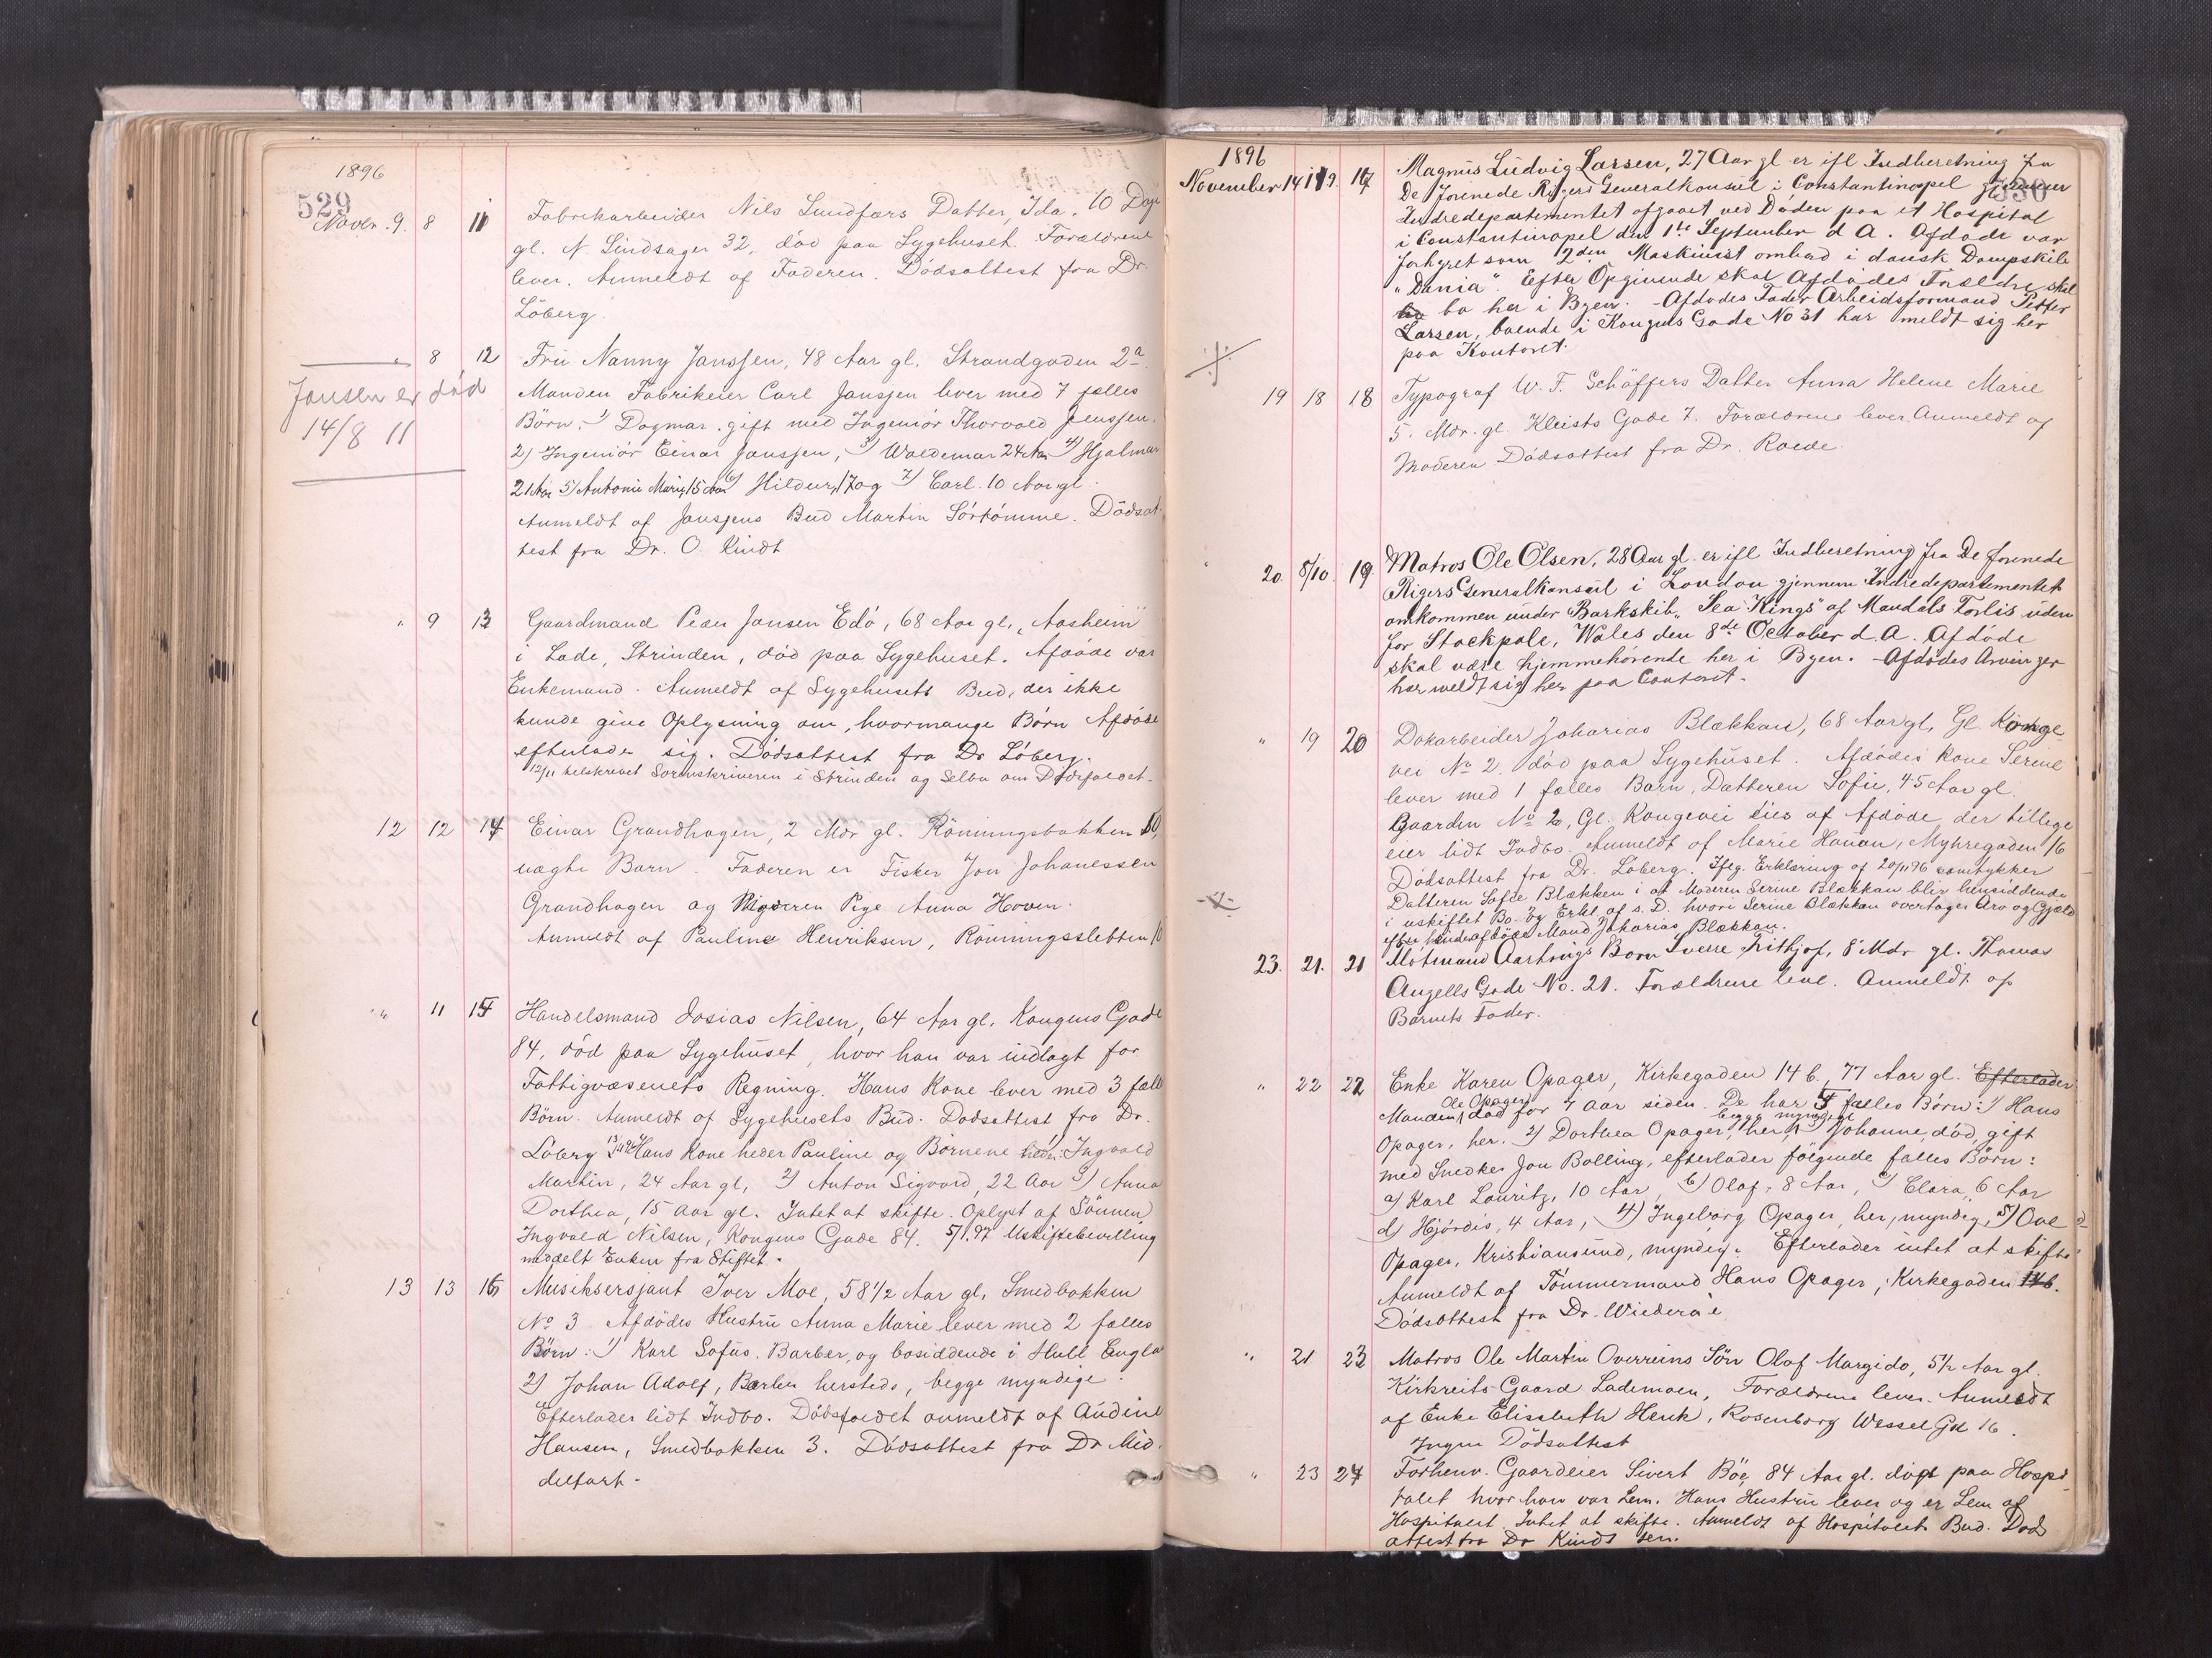 1896
529
Novbr. 9. 8 11 Fabrikarbeider Nils Sundfærs Datter, Ida, 10 Dage
gl. N. Sindsager 32, död paa Sygehuset. Forældrene
lever. Anmeldt af Faderen. Dödsattest fra Dr.
Löberg.
" 8 12 Fru Nanny Janssen, 48 Aar gl. Strandgaden 2a
Jansen er död
14/8 11
Manden Fabrikeier Carl Janssen lever med 7 fælles
Börn: 1) Dagmar, gift med Ingeniör Thorvald Jenssen,
2) Ingeniör Einar Janssen, 3) Waldemar 24 Aar 4) Hjalmar
21 Aar 5) Antonie Marie, 15 Aar 6) Hildur, 17 og 7) Carl. 10 Aar gl.
Anmeldt af Janssens Bud Martin Sörtömme. Dödsat-
test fra Dr. O. Kindt
" 9 13 Gaardmand Peder Jansen Edö, 68 Aar gl., "Aasheim"
i Lade, Strinden, död paa Sygehuset. Afdöde var
Enkemand. Anmeldt af Sygehusets Bud, der ikke
kunde give Oplysning om, hvormange Börn Afdöde
efterlader sig. Dödsattest fra Dr Löberg.
12/11 tilskrevet Sorenskriveren i Strinden og Selbu om Dödsfaldet.
12 12 14 Einar Grandhagen, 2 Mdr gl. Rönningsbakken 10,
uægte Barn. Faderen er Fisker Jon Johanessen
Grandhagen og Moderen Pige Anna Hoven.
Anmeldt af Pauline Henriksen, Rönningsletten 10
" 11 15 Handelsmand Josias Nilsen, 64 Aar gl. Kongens Gade
84, död paa Sygehuset, hvor han var indlagt for
Fattigvæsenets Regning. Hans Kone lever med 3 fælles
Börn. Anmeldt af Sygehusets Bud. Dødsattest fra Dr.
Löberg 13/11 96 Hans Kone heder Pauline og Börnene heder: Ingvald
Martin, 24 Aar gl, 2) Anton Sigvard, 22 Aar 3) Anna
Dorthea, 15 Aar gl. Intet at skifte. Oplyst af Sönnen
Ingvald Nilsen, Kongens Gade 84. 5/1.97 Uskiftebevilling
meddelt Enken fra Stiftet.
13 13 16 Musiksersjant Iver Moe, 58 1/2 Aar gl, Smedbakken
No 3 Afdödes Hustru Anna Marie lever med 2 fælles
Börn: 1) Karl Sofus. Barber, og bosiddende i Hull Engla
2) Johan Adolf, Barber hersteds, begge myndige.
Efterlader lidt Indbo. Dödsfaldet anmeldt af Audine
Hansen, Smedbakken 3. Dödsattest fra Dr Mid-
delfart.
1896
530
November 14 1/9. 17 Magnus Ludvig Larsen, 27 Aar gl er ifl Indberetning fra
De forenede Rigers Generalkonsul i Constantinopel gjennem
Indredepartementet afgaaet ved Døden paa et Hospital
i Constantinopel den 1ste September d A. Afdøde var
forhyret som 2den Maskinist ombord i dansk Dampskib
"Dania". Efter Opgivende skal Afdødes Forældre skal
bo her i Byen. - Afdødes Fader Arbeidsformand Petter
Larsen, boende i Kongens Gade No 31 har meldt sig her
paa Kontoret.
19 18 18 Typograf W. F. Schöffers Datter Anna Helene Marie
5. Mdr. gl. Kleists Gade 7. Forældrene lever. Anmeldt af
Moderen Dödsattest fra Dr. Roede.
20. 8/10. 19. Matros Ole Olsen, 28 Aar gl. er ifl Indberetning fra De forenede
Rigers Generalkonsul i London gjennem Indredepartementet
omkommen under Barkskib "Sea Kings" af Mandals Forlis uden
for Stackpole, Wales den 8de October d. A. Afdøde
skal være hjemmehørende her i Byen. - Afdødes Arvinger
har meldt sig her paa Contoret.
" 19 20 Dokarbeider Johanias Blækkan, 68 Aar gl, Gl. Konge-
vei No 2, död paa Sygehuset. Afdödes Kone Serine
lever med 1 fælles Barn, Datteren Sofie, 45 Aar gl.
Gaarden No 2, Gl. Kongevei eies af Afdöde, der tillige
eier lidt Indbo. Anmeldt af Marie Hanan, Myhregaden 16
Dödsattest fra Dr. Löberg. Ifeg. Erklæring af 20/11 96 samtykker
Datteren Sofie Blækken i at Moderen Serine Blækkan bliv hensiddende
i uskiftet Bo. Og Erkl. af s. D. hvori Serine Blækkan overtager Arv og Gjæld
efter hendes afdöde Mand Johanias Blækkan.
23. 21. 21 Aartrings Barn Sverre Frithjof, 8 Mdr gl. Thomas
Angells Gade No. 21. Forældrene leve. Anmeldt af
Barnets Fader.
" 22 22 Enke Karen Opager, Kirkegaden 14 b, 77 Aar gl. Efterlader
Manden, Ole Opager, död for 7 Aar siden. De har 5 fælles Börn: 1) Hans
Opager, her. 2) Dorthea Opager, her, begge myndige 3) Johanne, död, gift
med Snedker Jon Bolling, efterlader følgende fælles Börn:
a) Karl Lauritz, 10 Aar, b) Olaf, 8 Aar, c) Clara, 6 Aar
d) Hjördis, 4 Aar, 4) Ingeborg Opager, her, myndig, 5) Ove
Opager, Kristiansund, myndig. Efterlader intet at skifte
Anmeldt af Tömmermand Hans Opager, Kirkegaden 14b.
Dödsattest fra Dr. Wideröe
" 21 23 Matros Ole Martin Overreins Sön Olaf Margido, 5 1/2 Aar gl.
Kirkreits Gaard Lademoen, Forældrene lever. Anmeldt
af Enke Elissbeth Henk, Rosenborg Wessel Gd 16.
Ingen Dödsattest
" 23 24 Forhenv. Gaardeier Sivert Böe, 84 Aar gl. död paa Hospi-
talet hvor han var Lem. Hans Hustru lever og er Lem af
Hospitalet. Intet at skifte. Anmeldt af Hospitalets Bud. Døds
attest fra Dr Kindt sen.